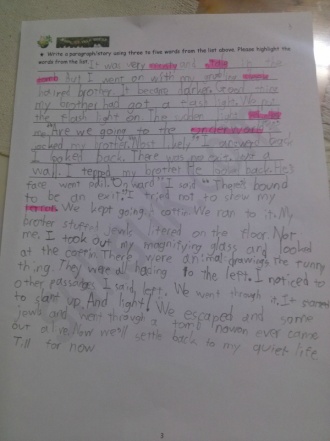 ★ Write a paragraph/story using three to five words from the list above. Please highlight the
words from the list.
It was very and in the
but I went on with my
haired brother. It became darker. Good thing
my brother had got a flash light. We put
the flash light on. The
my "Are we going to the
asked my brother. "Most likely" I answered back
I looked back. There was no exit. Just a
wall. I tepped my brother. He looked back. He's
face went pail. "Onward" I said "There's bound
to be an exit". I tried not to show my
We kept going. We ran to it. My
broter jewls litered on the floor. Not
me. I took out my magnifying glass and looked
at the There were animal drawings. The funny
thing. They were all hading to the left. I noticed to
other passages. I said left. We went through it. It started
to slant up. And light! We escaped and some
jewls and went through a tomb ever came
out alive. Now we'll settle back to my quiet life.
Till for now